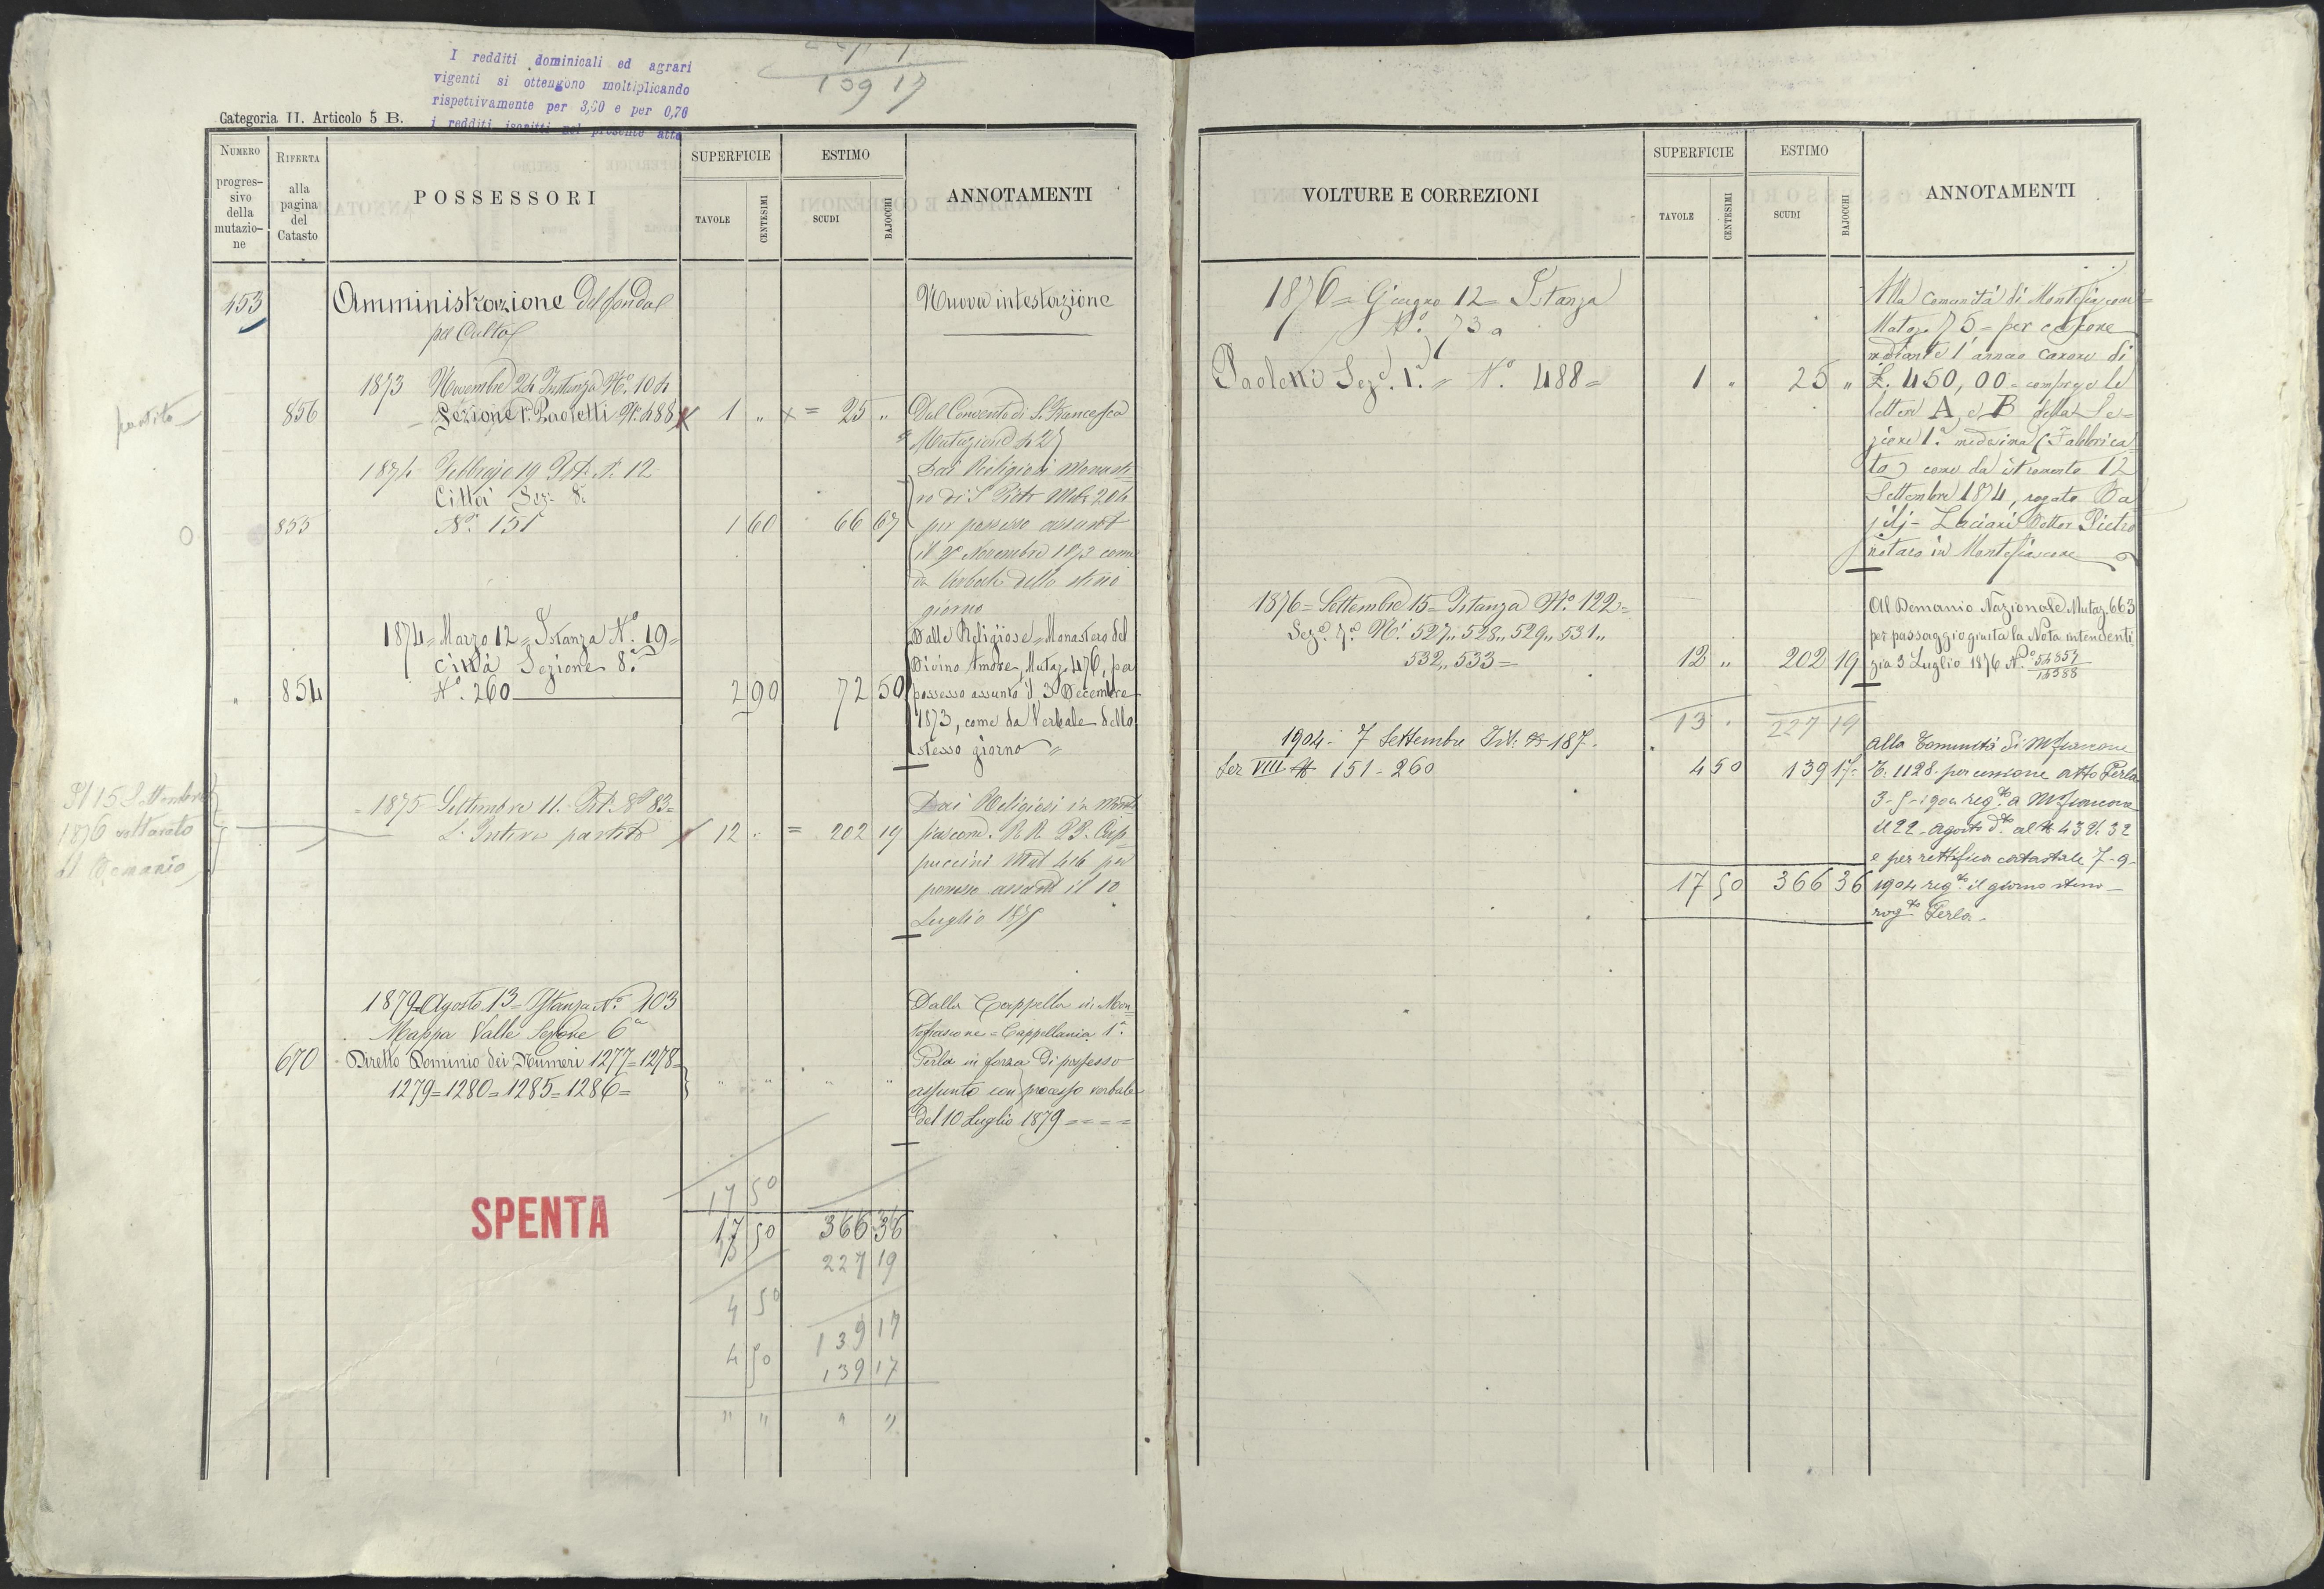 I redditi dominicali ed agrari
vigenti si ottengono moltiplicando
rispettivamente per 3,60 e per 0,70
i redditi iscritti nel presente atto
139 17
Categoria II. Articolo 5 B.
NUMERO progressivo della mutazione
RIFERTA alla pagina del Catasto
POSSESSORI
SUPERFICIE
TAVOLE
CENTESIMI
ESTIMO
SCUDI
BAJOCCHI
ANNOTAMENTI
453
Amministrazione del fondo
pel Culto
Nuova intestazione
1873 Novembre 24 Instanza N.º 104
partito
856 Sezione 1ª Paoletti N.º 488 1 " = 25 "
Dal Convento di S. Francesco
Mutazione 427
1874 Febbrajo 19 Ist. N. 12
Città Sez. 8ª
O
855 N.º 151 1 60 66 67
Dai Religiosi Monaste
ro di S. Pietro Mut. 204
per possesso assunto
il 9 Novembre 1873 come
da Verbale dello stesso
giorno
1874 = Marzo 12 = Istanza N.º 19 =
Città Sezione 8ª
" 854 N.º 260 2 90 72 50
Dalle Religiose = Monastero del
Divino Amore, Mutaz. 476, per
possesso assunto il 3 Decembre
1873, come da Verbale dello
stesso giorno "
Il 15 Settembre
1876 volturato
al Demanio
= 1875 Settembre 11. Ist. N.º 83 =
L'Intera partita 12 : = 202 19
Dai Religiosi in Monte
fiascone. R.R. PP. Cap
puccini Mut. 416 per
possesso assunto il 10
Luglio 1875
1879 = Agosto 13 = Istanza N.º 103
Mappa Valle Sezione 6ª
670 Diretto Dominio dei Numeri 1277 = 1278 =
1279 = 1280 = 1285 = 1286 = " " " "
Dalla Cappella in Mon=
tefiascone = Cappellania 1ª
Perla in forza di possesso
assunto con processo verbale
del 10 Luglio 1879 = = = =
SPENTA
17 50
17 50 366 36
13 227 19
4 50 139 17
4 50 139 17
" " " "
VOLTURE E CORREZIONI
SUPERFICIE
TAVOLE
CENTESIMI
ESTIMO
SCUDI
BAJOCCHI
ANNOTAMENTI
1876 = Giugno 12 = Istanza
N.º 73
Paoletti Sez.e 1ª = N.º 488 = 1 " 25 "
Alla Comunità di Montefiascone =
Mutaz. 75 = per cessione
mediante l'annuo canone di
£. 450,00 = compreso le
lettere A, e B della Se=
zione 1ª medesima (Fabbrica
to) come da istromento 12
Settembre 1874, rogato Da
Luciani Dottor Pietro
notaro in Montefiascone
1876 = Settembre 15 = Istanza N.º 122 =
Sez.e 7ª N.i 527,, 528,, 529,, 531,,
532,, 533 = 12 " 202 19
Al Demanio Nazionale Mutaz. 663
per passaggio giusta la Nota intenden
zia 3 Luglio 1876 N.º 54857
13 . 227 19
1904 = 7 Settembre Ist. N. 187.
Sez VIII N 151 - 260 4 50 139 17
Alla Comunità di Mfiascone
T. 1128. per cessione atto Perla
3-5-1904 reg.to a Mfiascone
il 22 Agosto d.to al N 43 V. 32
e per rettifica catastale 7-9-
1904 reg.to il giorno stesso
rog.to Perla.
17 50 366 36